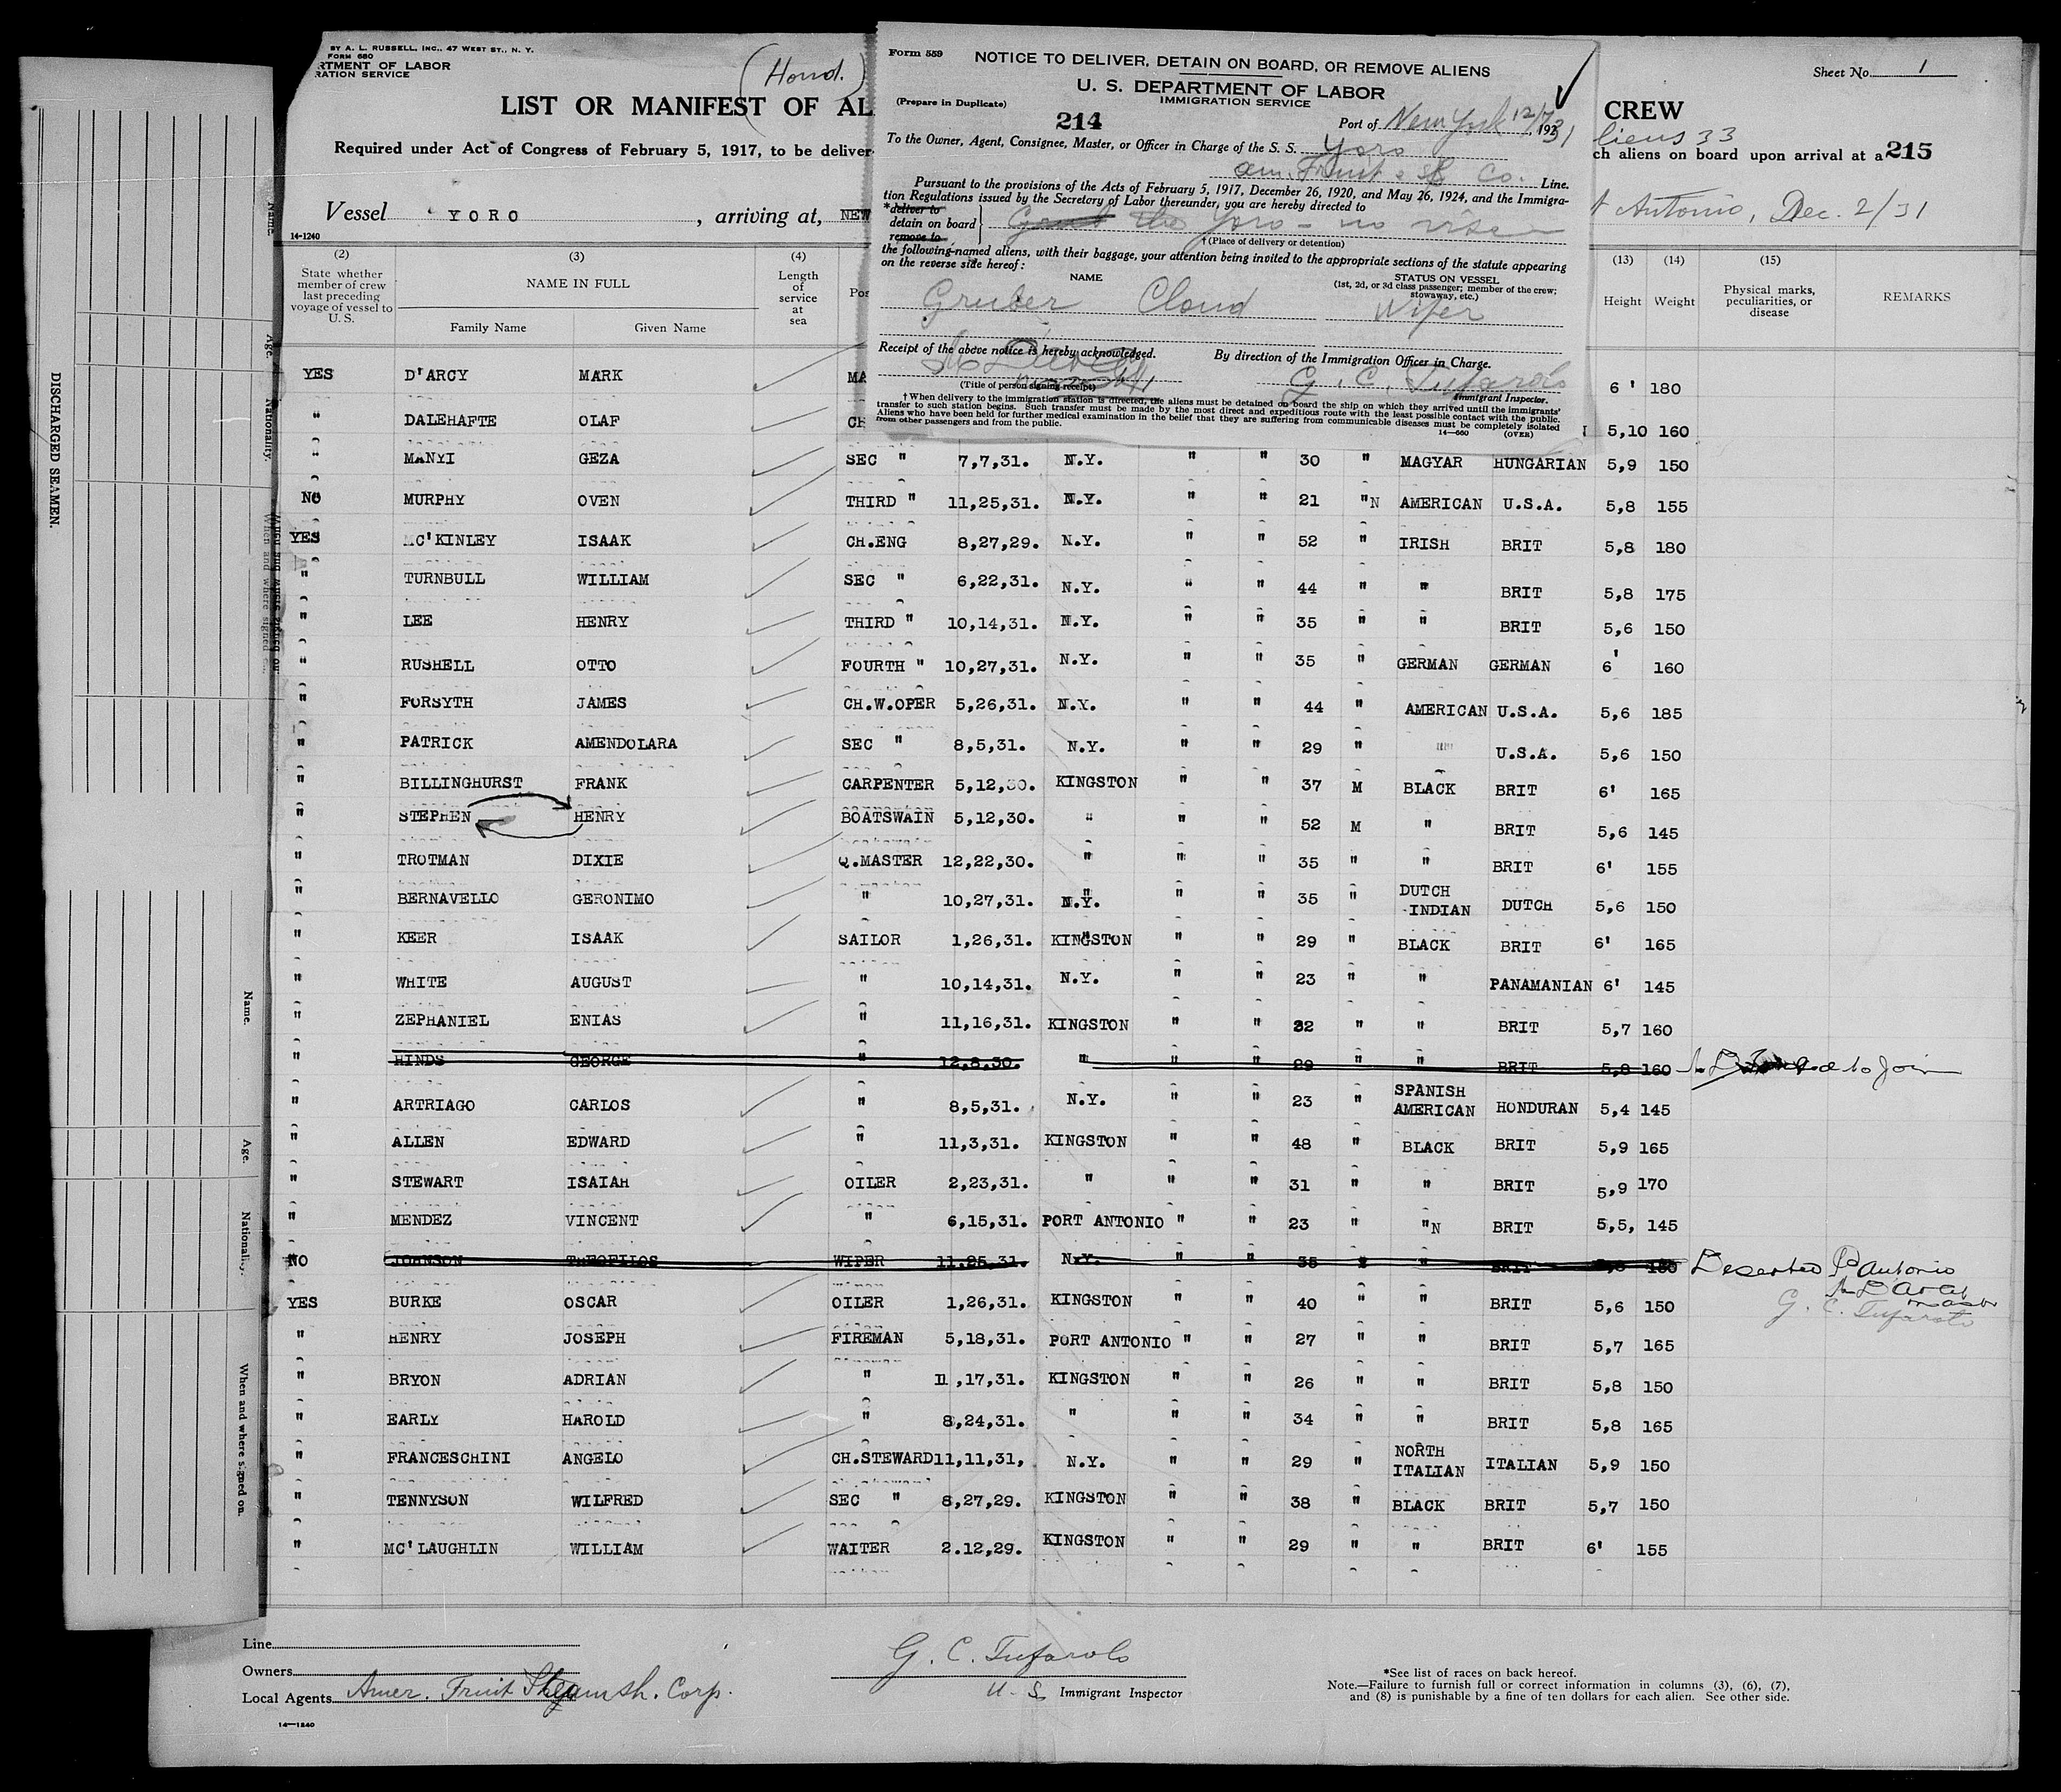 BY A. L. RUSSELL, INC., 47 WEST ST., N. Y.
FORM 680
RTMENT OF LABOR
RATION SERVICE
(Hond.)
LIST OR MANIFEST OF AL
Required under Act of Congress of February 5, 1917, to be deliver
Vessel YORO, arriving at, NEW
14-1240
Form 559
NOTICE TO DELIVER, DETAIN ON BOARD, OR REMOVE ALIENS
U. S. DEPARTMENT OF LABOR
IMMIGRATION SERVICE
(Prepare in Duplicate)
214
Port of New York 12/7/31, 192
To the Owner, Agent, Consignee, Master, or Officer in Charge of the S. S. Yoro
Am. Fruit & SS Co. Line.
Pursuant to the provisions of the Acts of February 5, 1917, December 26, 1920, and May 26, 1924, and the Immigra-
tion Regulations issued by the Secretary of Labor thereunder, you are hereby directed to
*deliver to
detain on board } the Yoro - no visa
remove to
†(Place of delivery or detention)
the following-named aliens, with their baggage, your attention being invited to the appropriate sections of the statute appearing
on the reverse side hereof:
NAME STATUS ON VESSEL
(1st, 2d, or 3d class passenger; member of the crew;
stowaway, etc.)
Gruber Cloud Wiper
Receipt of the above notice is hereby acknowledged. By direction of the Immigration Officer in Charge.
G. C. Tufarolo
(Title of person signing receipt) Immigrant Inspector.
†When delivery to the immigration station is directed, the aliens must be detained on board the ship on which they arrived until the immigrants'
transfer to such station begins. Such transfer must be made by the most direct and expeditious route with the least possible contact with the public.
Aliens who have been held for further medical examination in the belief that they are suffering from communicable diseases must be completely isolated
from other passengers and from the public.
14—660 (OVER)
Sheet No. 1
CREW
liens 33
ch aliens on board upon arrival at a 215
t Antonio, Dec. 2/31
(2) (3) (4) (13) (14) (15)
State whether
member of crew
last preceding
voyage of vessel to
U. S.
NAME IN FULL
Family Name Given Name
Length
of
service
at
sea
Pos
Height Weight
Physical marks,
peculiarities, or
disease
REMARKS
YES D'ARCY MARK MA 6' 180
" DALEHAFTE OLAF CH 5,10 160
" MANYI GEZA SEC " 7,7,31. N.Y. " " 30 " MAGYAR HUNGARIAN 5,9 150
NO MURPHY OVEN THIRD " 11,25,31. N.Y. " " 21 "N AMERICAN U.S.A. 5,8 155
YES MC'KINLEY ISAAK CH.ENG 8,27,29. N.Y. " " 52 " IRISH BRIT 5,8 180
" TURNBULL WILLIAM SEC " 6,22,31. N.Y. " " 44 " " BRIT 5,8 175
" LEE HENRY THIRD " 10,14,31. N.Y. " " 35 " " BRIT 5,6 150
" RUSHELL OTTO FOURTH " 10,27,31. N.Y. " " 35 " GERMAN GERMAN 6' 160
" FORSYTH JAMES CH.W.OPER 5,26,31. N.Y. " " 44 " AMERICAN U.S.A. 5,6 185
" PATRICK AMENDOLARA SEC " 8,5,31. N.Y. " " 29 " " U.S.A. 5,6 150
" BILLINGHURST FRANK CARPENTER 5,12,30. KINGSTON " " 37 M BLACK BRIT 6' 165
" STEPHEN HENRY BOATSWAIN 5,12,30. " " " 52 M " BRIT 5,6 145
" TROTMAN DIXIE Q.MASTER 12,22,30. " " " 35 " " BRIT 6' 155
" BERNAVELLO GERONIMO " 10,27,31. N.Y. " " 35 " DUTCH INDIAN DUTCH 5,6 150
" KEER ISAAK SAILOR 1,26,31. KINGSTON " " 29 " BLACK BRIT 6' 165
" WHITE AUGUST " 10,14,31. N.Y. " " 23 " " PANAMANIAN 6' 145
" ZEPHANIEL ENIAS " 11,16,31. KINGSTON " " 32 " " BRIT 5,7 160
" HINDS GEORGE " 12,8,30. " " " 29 " " BRIT 5,8 160 to Join
" ARTRIAGO CARLOS " 8,5,31. N.Y. " " 23 " SPANISH AMERICAN HONDURAN 5,4 145
" ALLEN EDWARD " 11,3,31. KINGSTON " " 48 " BLACK BRIT 5,9 165
" STEWART ISAIAH OILER 2,23,31. " " " 31 " " BRIT 5,9 170
" MENDEZ VINCENT " 6,15,31. PORT ANTONIO " " 23 " "N BRIT 5,5, 145
NO JOHNSON THEOFILOS WIPER 11,25,31. N.Y. " " 35 " " BRIT Deserted Pt Antonio
YES BURKE OSCAR OILER 1,26,31. KINGSTON " " 40 " " BRIT 5,6 150 M D'Arcy master
G. C. Tufarolo
" HENRY JOSEPH FIREMAN 5,18,31. PORT ANTONIO " " 27 " " BRIT 5,7 165
" BRYON ADRIAN " 11,17,31. KINGSTON " " 26 " " BRIT 5,8 150
" EARLY HAROLD " 8,24,31. " " " 34 " " BRIT 5,8 165
" FRANCESCHINI ANGELO CH.STEWARD 11,11,31, N.Y. " " 29 " NORTH ITALIAN ITALIAN 5,9 150
" TENNYSON WILFRED SEC " 8,27,29. KINGSTON " " 38 " BLACK BRIT 5,7 150
" MC'LAUGHLIN WILLIAM WAITER 2.12,29. KINGSTON " " 29 " " BRIT 6' 155
Line
Owners
Local Agents Amer. Fruit Steamsh. Corp.
14—1240
G. C. Tufarolo
U. S. Immigrant Inspector
*See list of races on back hereof.
Note.—Failure to furnish full or correct information in columns (3), (6), (7),
and (8) is punishable by a fine of ten dollars for each alien. See other side.
DISCHARGED SEAMEN.
Name.
Age.
Nationality.
When and where signed on.
Name.
Age.
Nationality.
When and where signed on.